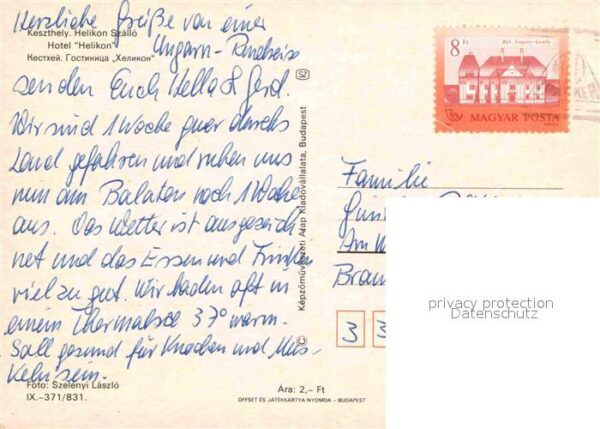 Herzliche Grüße von einer
Keszthely. Helikon Szálló
Hotel "Helikon"
Кестхей. Гостиница „Хеликон"
Ungarn-Rundreise
senden Euch Hella & Gerd.
Wir sind 1 Woche quer durchs
Land gefahren und ruhen uns
nun am Balaton noch 1 Woche
aus. Das Wetter ist ausgezeich
net und das Essen und Trinken
viel zu gut. Wir baden oft in
einem Thermalbad 37° warm.
Soll gesund für Knochen und Mus-
keln sein.
Foto: Szelényi László
IX.-371/831.
Ára: 2,- Ft
OFFSET ÉS JÁTÉKKÁRTYA NYOMDA - BUDAPEST
© Képzőművészeti Alap Kiadóvállalata, Budapest
SZ
8 Ft
MAGYAR POSTA
Familie
Am
Bran
3 3
privacy protection
Datenschutz